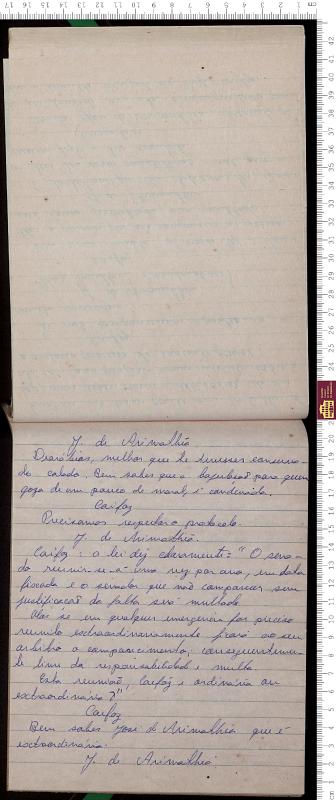 J. de Arimathéa
melhor que te tivesses conserva-
do calado. Bem sabes que a para quem
goza de um pouco de moral, é condenida.
Caifaz
Precisamos respeitar o protocolo.
J. de Arimathéa.
Caifaz: a lei diz claramente: "O sena-
do reunir-se-á uma vez por ano, em data
fixada e o senador que não comparecer sem
justificação da falta será multado.
Mas se em qualquer emergencia for preciso
reunião extraordinariamente ficará ao seu
arbitrio o comparecimento, consequentemen-
te livre da responsabilidade e multa.
Esta reunião, Caifaz é ordinária ou
extraordinária?"
Caifaz
Bem sabes José de Arimathéa que é
extraordinária.
J. de Arimathéa